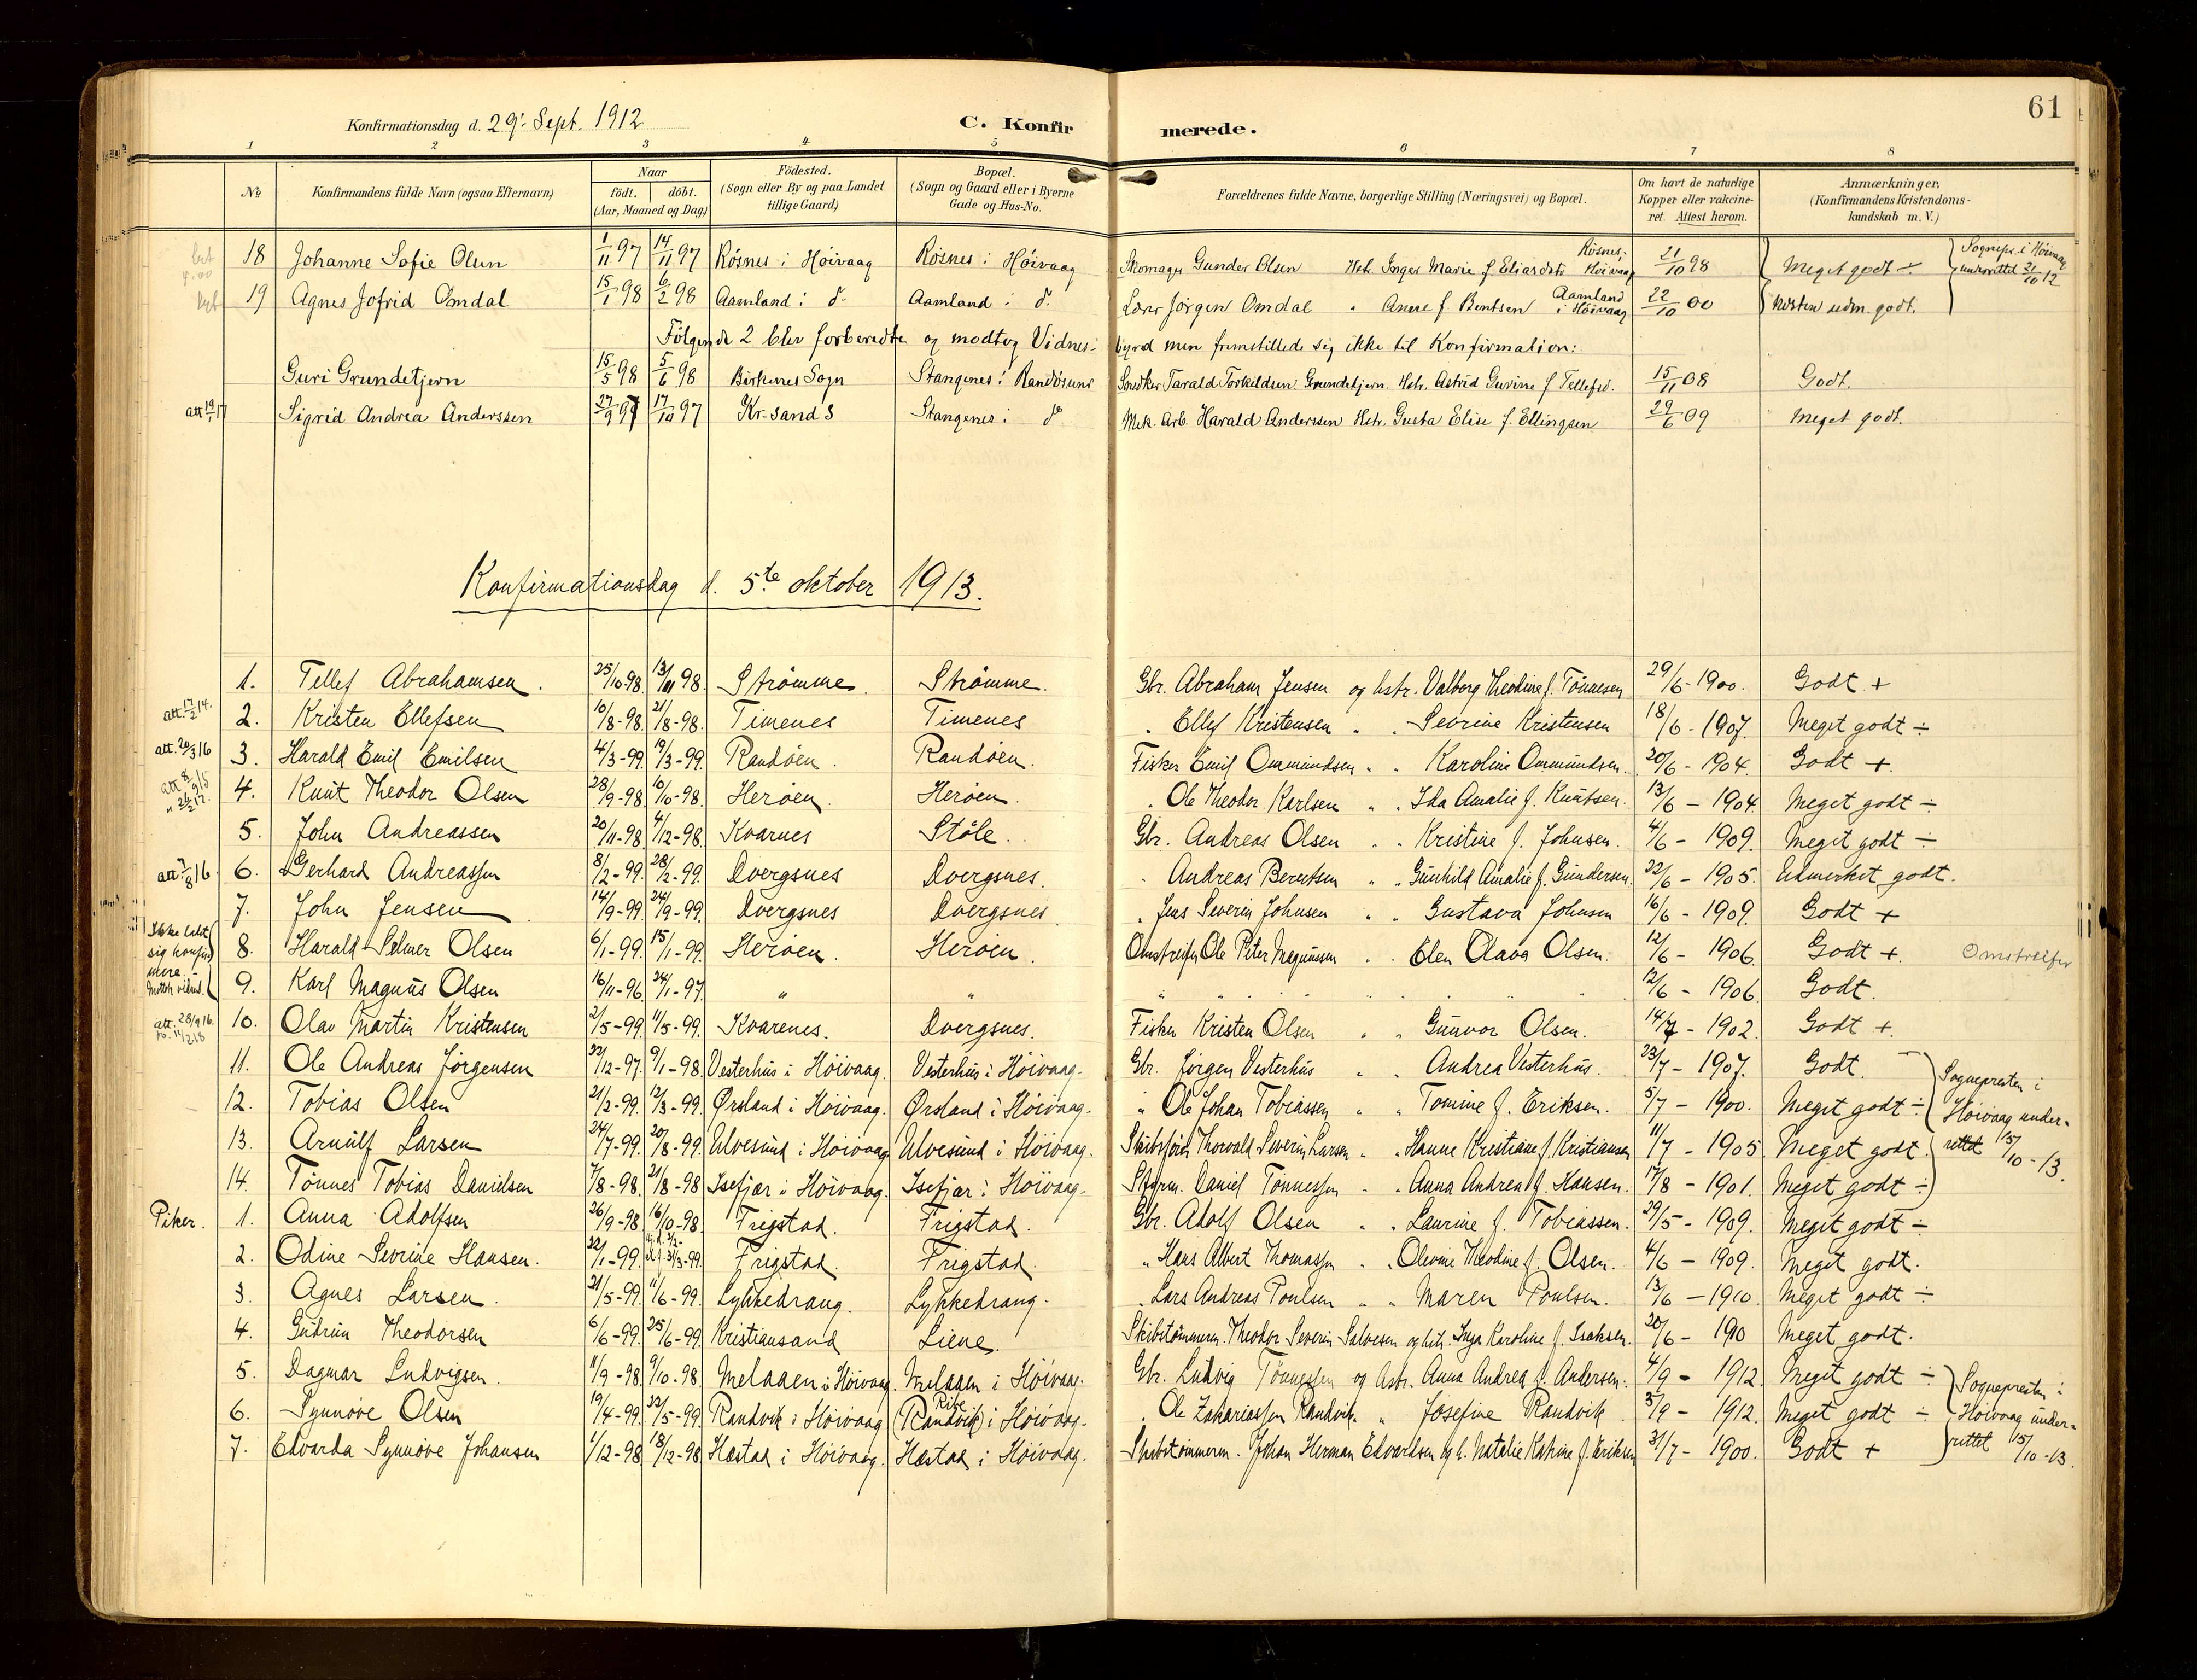 61
Konfirmationsdag d. 29' Sept. 1912 C. Konfirmerede.
1 2 3 4 5 6 7 8
No Konfirmandens fulde Navn (ogsaa Efternavn) Naar født. døbt. (Aar, Maaned og Dag) Födested. (Sogn eller By og paa Landet tillige Gaard) Bopæl. (Sogn og Gaard eller i Byerne Gade og Hus-No. Forældrenes fulde Navne, borgerlige Stilling (Næringsvei) og Bopæl. Om havt de naturlige Kopper eller vakcineret. Attest herom. Anmærkninger. (Konfirmandens Kristendomskundskab m. V.)
18 Johanne Sofie Olsen 1/11 97 14/11 97 Røsnes i Høivaag Røsnes i Høivaag Skomager Gunder Olsen Hstr. Inger Marie f. Eliasdtr Røsnes i Høivaag 21/10 98 Meget godt ÷ Sognepr. i Høivaag underrettet 21/10 12
19 Agnes Jofrid Omdal 15/1 98 6/2 98 Aamland i do Aamland i do Lærer Jørgen Omdal " Anne f. Bentsen Aamland i Høivaag 22/10 00 Næsten udm. godt.
Følgende 2 blev forberedte og modtog Vidnesbyrd men fremstillede sig ikke til Konfirmation:
Guri Grundetjern 15/5 98 5/6 98 Birkenes Sogn Stangenes i Randøsund Snedker Tarald Torkildsen Grundetjern Hstr. Astrid Gurine f Tellefsd. 15/11 08 Godt.
att 19/1 17 Sigrid Andrea Anderssen 27/9 97 17/10 97 Kr-sand S Stangenes i do Mek. Arb. Harald Anderssen Hstr. Gusta Elise f. Ellingsen 29/6 09 Meget godt.
Konfirmationsdag d. 5te oktober 1913.
1. Tellef Abrahamsen. 25/10-98. 13/11 98. Strømme. Strømme. Gbr. Abraham Jensen og hstr. Valborg Theodine f. Tønnesen 29/6-1900. Godt +
att. 17/2 14. 2. Kristen Ellefsen 10/8-98. 21/8-98. Timenes Timenes " Ellef Kristensen " " Sevrine Kristensen 18/6-1907. Meget godt ÷
att. 20/3 16 3. Harald Emil Emilsen 4/3-99. 19/3-99. Randøen. Randøen. Fisker Emil Ommundsen " " Karoline Ommundsen. 20/6-1904. Godt +.
4. Knut Theodor Olsen 28/9-98. 10/10-98. Herøen. Herøen. " Ole Theodor Karlsen " " Ida Amalie f. Knutsen. 13/6-1904. Meget godt ÷
5. John Andreassen 20/11-98. 4/12-98. Kvarnes Støle. Gbr. Andreas Olsen " " Kristine f. Johnsen. 4/6-1909. Meget godt ÷
att. 7/8 16 6. Gerhard Andreassen 8/2-99. 28/2-99. Dvergsnes Dvergsnes. " Andreas Berentsen " " Gunhild Amalie f. Gundersen. 22/6-1905. Udmerket godt.
7. John Jensen 14/9-99. 24/9-99. Dvergsnes Dvergsnes " Jens Severin Johnsen " " Gustava Johnsen 16/6-1909. Godt +
Ikke ladt sig konfirmere. Mottok vidnesb.
8. Harald Selmer Olsen 6/1-99. 15/1-99. Herøen. Herøen. Omstreifer Ole Peter Magnussen " " Elen Olava Olsen. 12/6-1906. Godt +. Omstreifer
9. Karl Magnus Olsen 16/11-96. 24/1-97. " " " " " " " " 12/6-1906. Godt.
att. 28/9 16. 10. Olav Martin Kristensen 2/5-99. 11/5-99. Kvarenes. Dvergsnes. Fisker Kristen Olsen " " Gunvor Olsen. 14/7-1902. Godt +.
11. Ole Andreas Jørgensen 22/12-97. 9/1-98. Vesterhus i Høivaag. Vesterhus i Høivaag. Gbr. Jørgen Vesterhus " " Andrea Vesterhus. 23/7-1907. Godt.
12. Tobias Olsen 21/2-99. 12/3-99. Ørsland i Høivaag. Ørsland i Høivaag. " Ole Johan Tobiassen " " Tomine f. Eriksen. 5/7-1900. Meget godt ÷
Sognepresten i Høivaag underrettet 15/10-13.
13. Arnulf Larsen 24/7-99. 20/8-99. Ulvesund i Høivaag Ulvesund i Høivaag. Skibsfører Thorvald Severin Larsen " " Hanne Kristiane f. Kristiansen 11/7-1905 Meget godt.
14. Tønnes Tobias Danielsen 7/8-98. 21/8-98 Isefjær i Høivaag. Isefjær i Høivaag. Styrm. Daniel Tønnessen " " Anna Andrea f. Hansen. 17/8-1901. Meget godt ÷
Piker. 1. Anna Adolfsen 26/9-98. 16/10-98. Frigstad. Frigstad. Gbr. Adolf Olsen " " Laurine f. Tobiassen. 29/5-1909. Meget godt ÷
2. Odine Sevrine Hansen. 22/1-99. 3/3-99. Frigstad. Frigstad. " Hans Albert Thomassen " " Olevine Theodine f. Olsen. 4/6-1909. Meget godt.
3. Agnes Larsen. 21/5-99. 11/6-99. Lykkedrang. Lykkedrang. " Lars Andreas Poulsen " " Maren Poulsen. 13/6-1910. Meget godt ÷
4. Gudrun Theodorsen 6/6-99. 25/6-99. Kristiansand Liene. Skibstømmerm. Theodor Severin Salvesen og hstr. Inga Karoline f. Isaksen. 20/6-1910 Meget godt.
5. Dagmar Ludvigsen. 11/9-98. 9/10-98 Melaaen i Høivaag. Melaaen i Høivaag. Gbr. Ludvig Tønnessen og hstr. Anna Andrea f. Andersen. 4/9-1912. Meget godt ÷
6. Synnøve Olsen 19/4-99. 22/5-99. Randvik i Høivaag (Randvik) Ribe i Høivaag. " Ole Zakariassen Randvik " " Josefine Randvik 5/9-1912. Meget godt ÷
Sognepresten i Høivaag underrettet 15/10-13.
7. Edvarda Synnøve Johansen 1/12-98 18/12-98 Hæstad i Høivaag. Hæstad i Høivaag. Skibstømmerm. Johan Herman Edvardsen og h. Natalie Katrine f. Eriksen 31/7-1900. Godt +